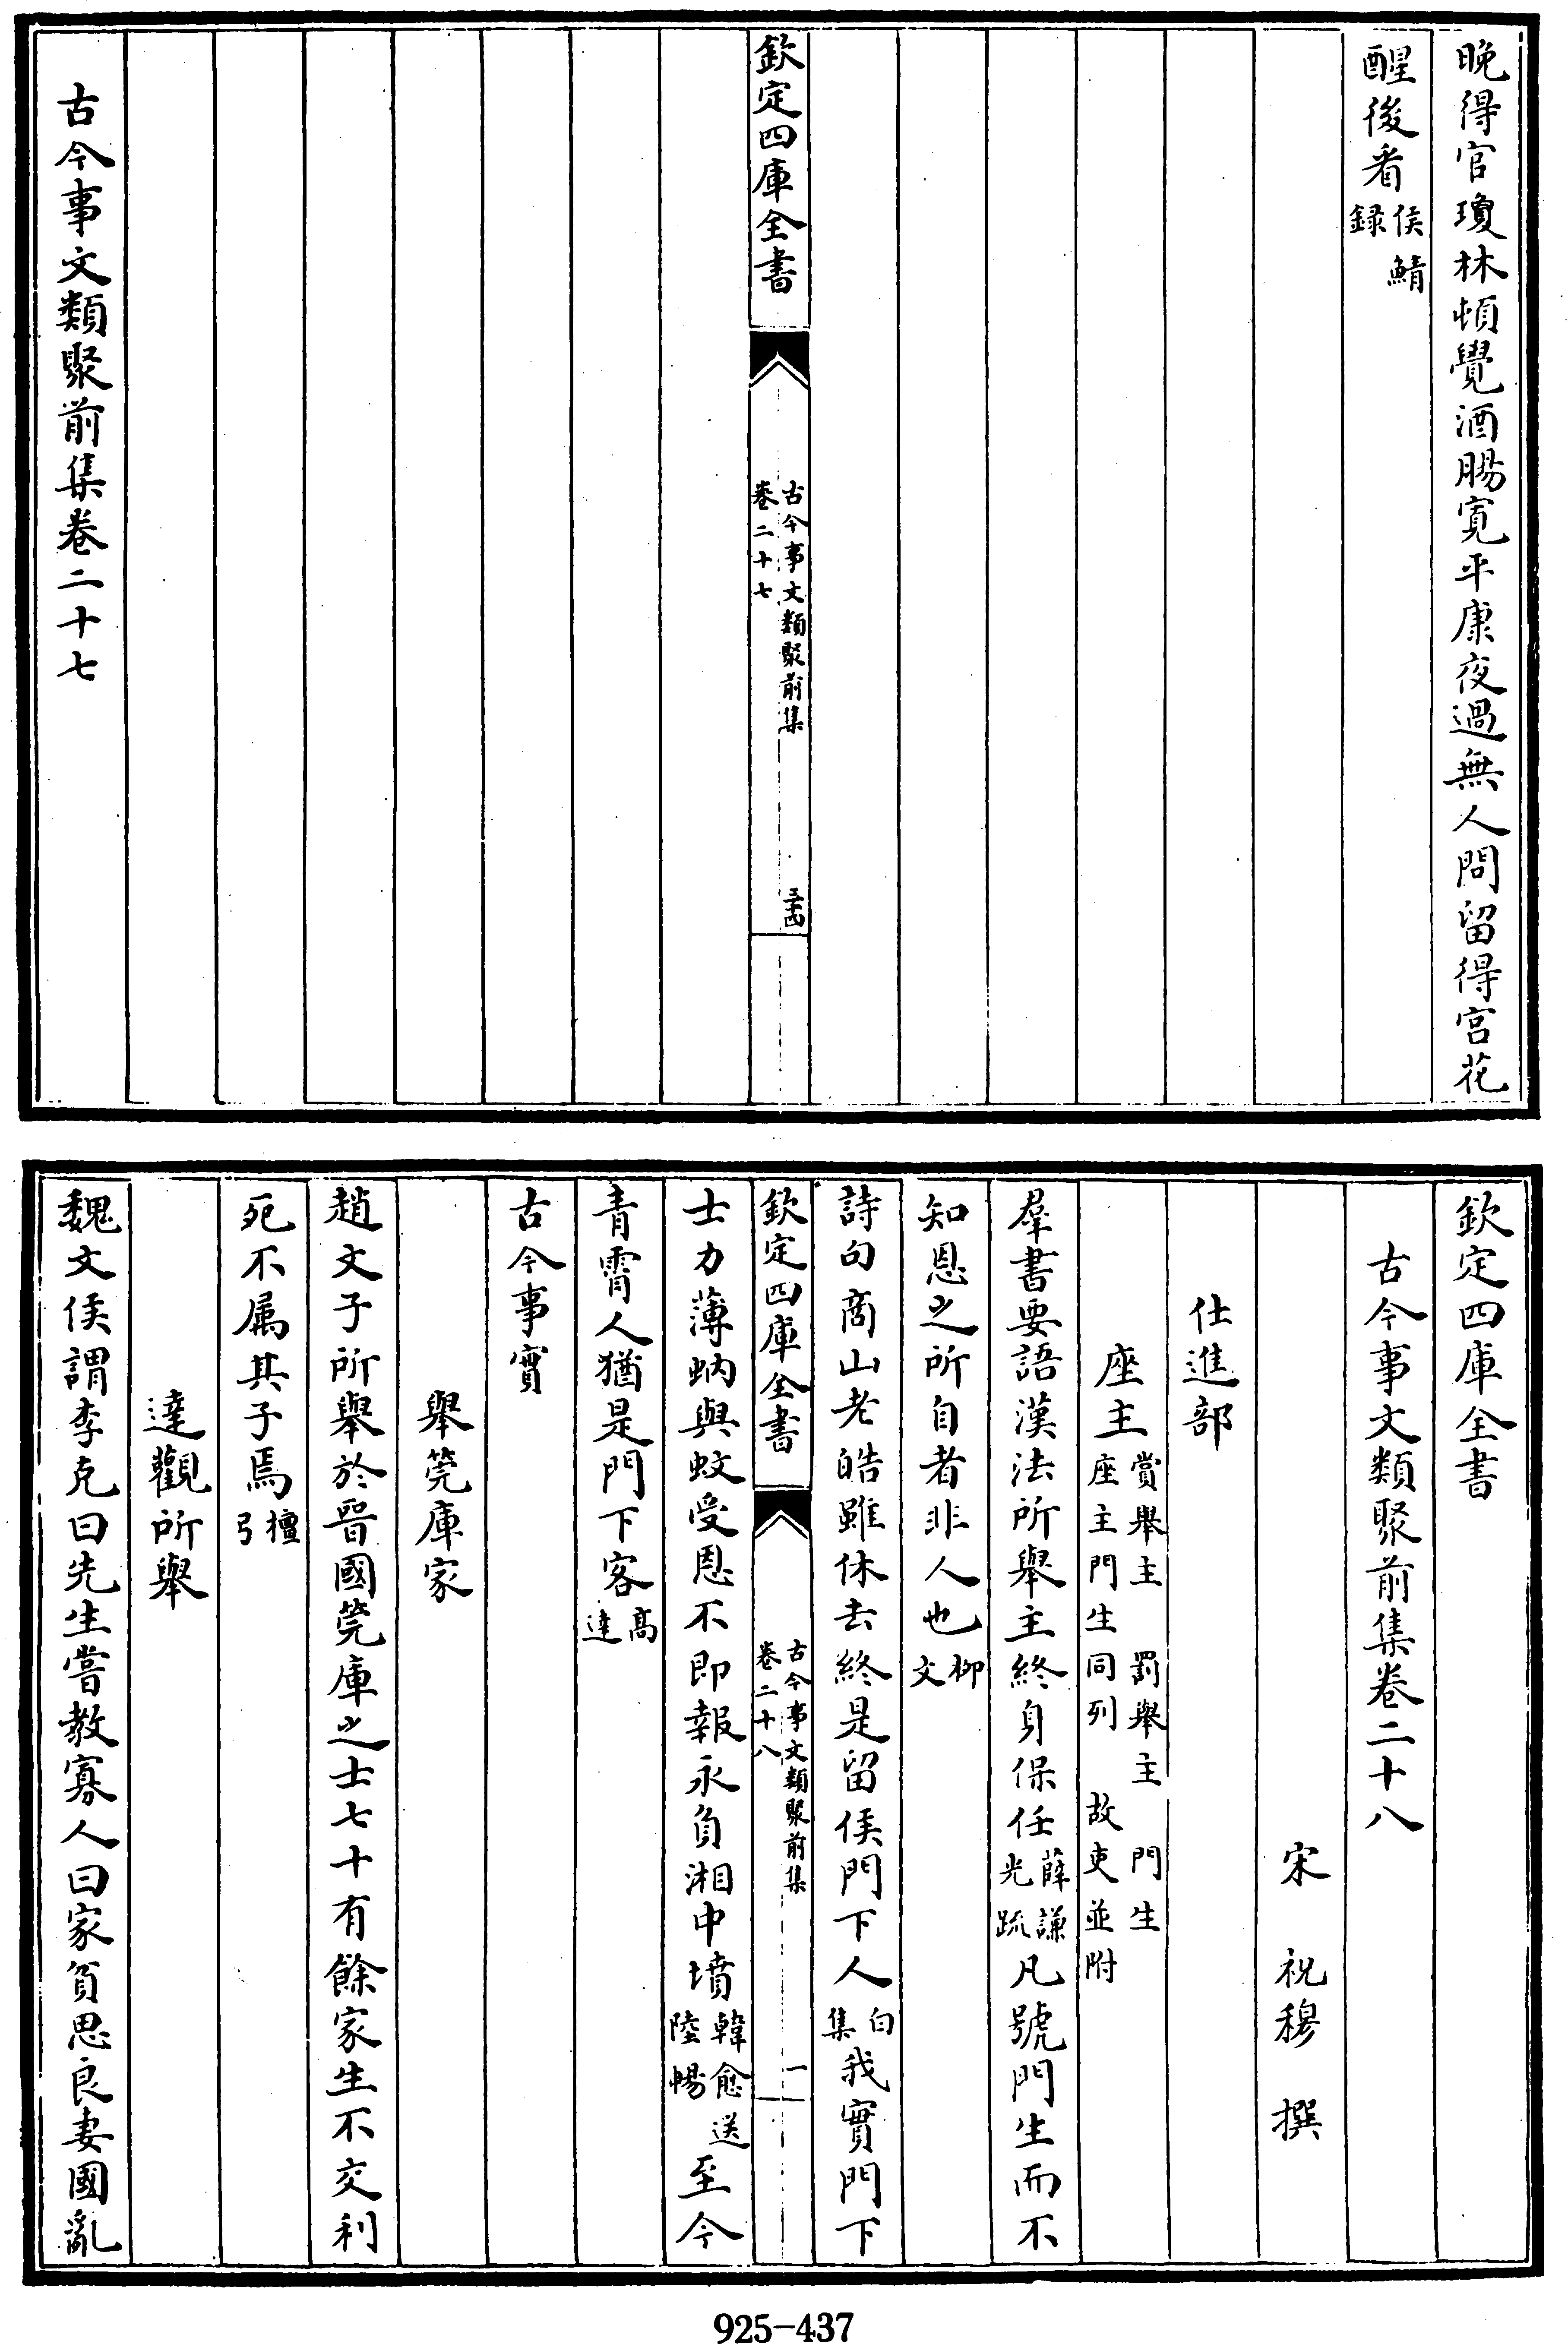 晚得官瓊林頓覺酒腸寛平康夜過無人問留得宫花
醒後看侯鯖録
欽定四庫全書
古今事文類聚前集
卷二十七
五十四
古今事文類聚前集卷二十七
欽定四庫全書
古今事文類聚前集卷二十八
宋 祝穆 撰
仕進部
座主賞舉主 罰舉主 門生
座主門生同列 故吏並附
羣書要語漢法所舉主終身保任薛謙光疏凡號門生而不
知恩之所自者非人也柳文
詩句商山老皓雖休去終是留侯門下人白集我實門下
欽定四庫全書
古今事文類聚前集
卷二十八
一
士力薄蚋與蚊受恩不即報永負湘中墳韓愈送陸暢至今
青霄人猶是門下客高達
古今事實
舉筦庫家
趙文子所舉於晉國筦庫之士七十有餘家生不交利
死不属其子焉檀弓
達觀所舉
魏文侯謂李克曰先生嘗教寡人曰家貧思良妻國亂
925-437